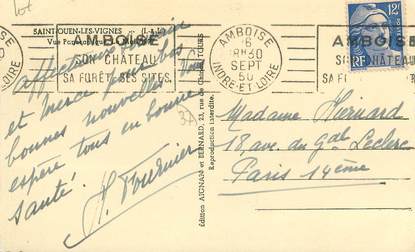 lot
SAINT-OUEN-LES-VIGNES — (I.-&-L.)
Vue
AMBOISE
SON CHÂTEAU
SA FORÊT, SES SITES
AMBOISE
18H30
SEPT
50
INDRE-ET-LOIRE
12F
RF
AMBOISE
SON CHÂTEAU
SA FORÊT, SES SITES
affectueux
et merci pour vos
bonnes nouvelles. Vous
espère tous en bonne
santé!
H. Fournier
37
Édition AIGNAN et BERNARD, 23, rue de Châteauneuf, TOURS
Reproduction interdite.
Madame Hénard
18, ave du Gal Leclerc
Paris 14ème